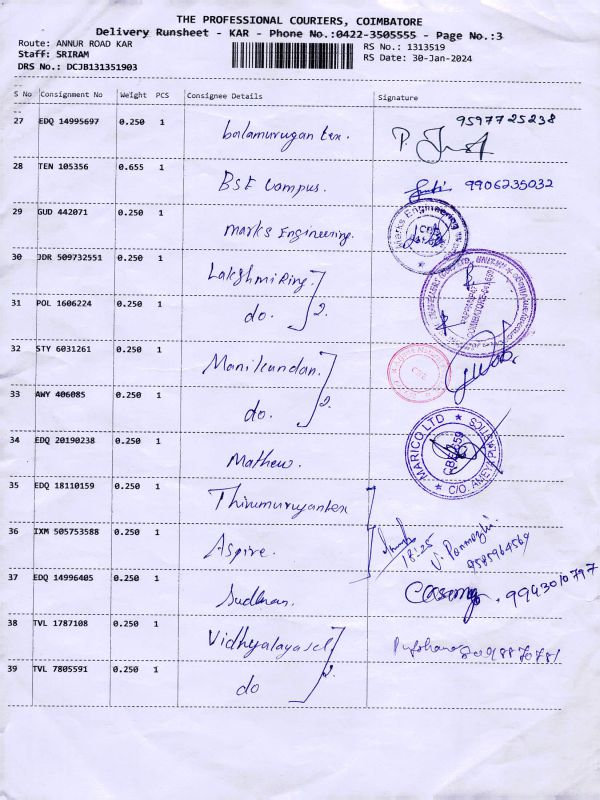 THE PROFESSIONAL COURIERS, COIMBATORE
Delivery Runsheet - KAR - Phone No.:0422-3505555 - Page No.:3
Route: ANNUR ROAD KAR
RS No.: 1313519
Staff: SRIRAM
RS Date: 30-Jan-2024
DRS No.: DCJB131351903
S No Consignment No Weight PCS Consignee Details Signature
27 EDQ 14995697 0.250 1 balamurugan tex. 9597725238
28 TEN 105356 0.655 1 BSE Campus. 9906235032
29 GUD 442071 0.250 1 marks Engineering.
30 JDR 509732551 0.250 1 Lakshmi Ring
31 POL 1606224 0.250 1 do. 2.
32 STY 6031261 0.250 1 Manikandan.
33 AWY 406085 0.250 1 do. 2.
34 EDQ 20190238 0.250 1 Mathew.
MARICO LTD
35 EDQ 18110159 0.250 1 Thirumurugantex
36 IXM 505753588 0.250 1 Aspire. 18:25 V. Ponmozhi
9585964569
37 EDQ 14996405 0.250 1 Sudhan. 9943010797
38 TVL 1787108 0.250 1 Vidhyalaya
39 TVL 7805591 0.250 1 do 2.